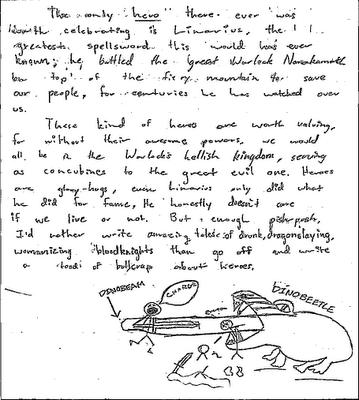 The only hero there ever was
worth celebrating is Linarius, the
greatest spellsword this world has ever
known, he battled the Great Warlock
on top of the firy mountain to save
our people, for centuries he has watched over
us.
These kind of heros are worth valuing,
for without their awesome powers, we would
all be in the Warlock's hellish kingdom, serving
as concubines to the great evil one. Heroes
are glory-hogs, even Linarius only did what
he did for fame, He honestly doesn't care
if we live or not. But enough pish-posh,
I'd rather write amazing tales of drunk, dragonslaying,
womanizing bloodknights than go off and write
a load of bullcrap about heroes.
CHARGE
DINOBEAM
DINOBEETLE